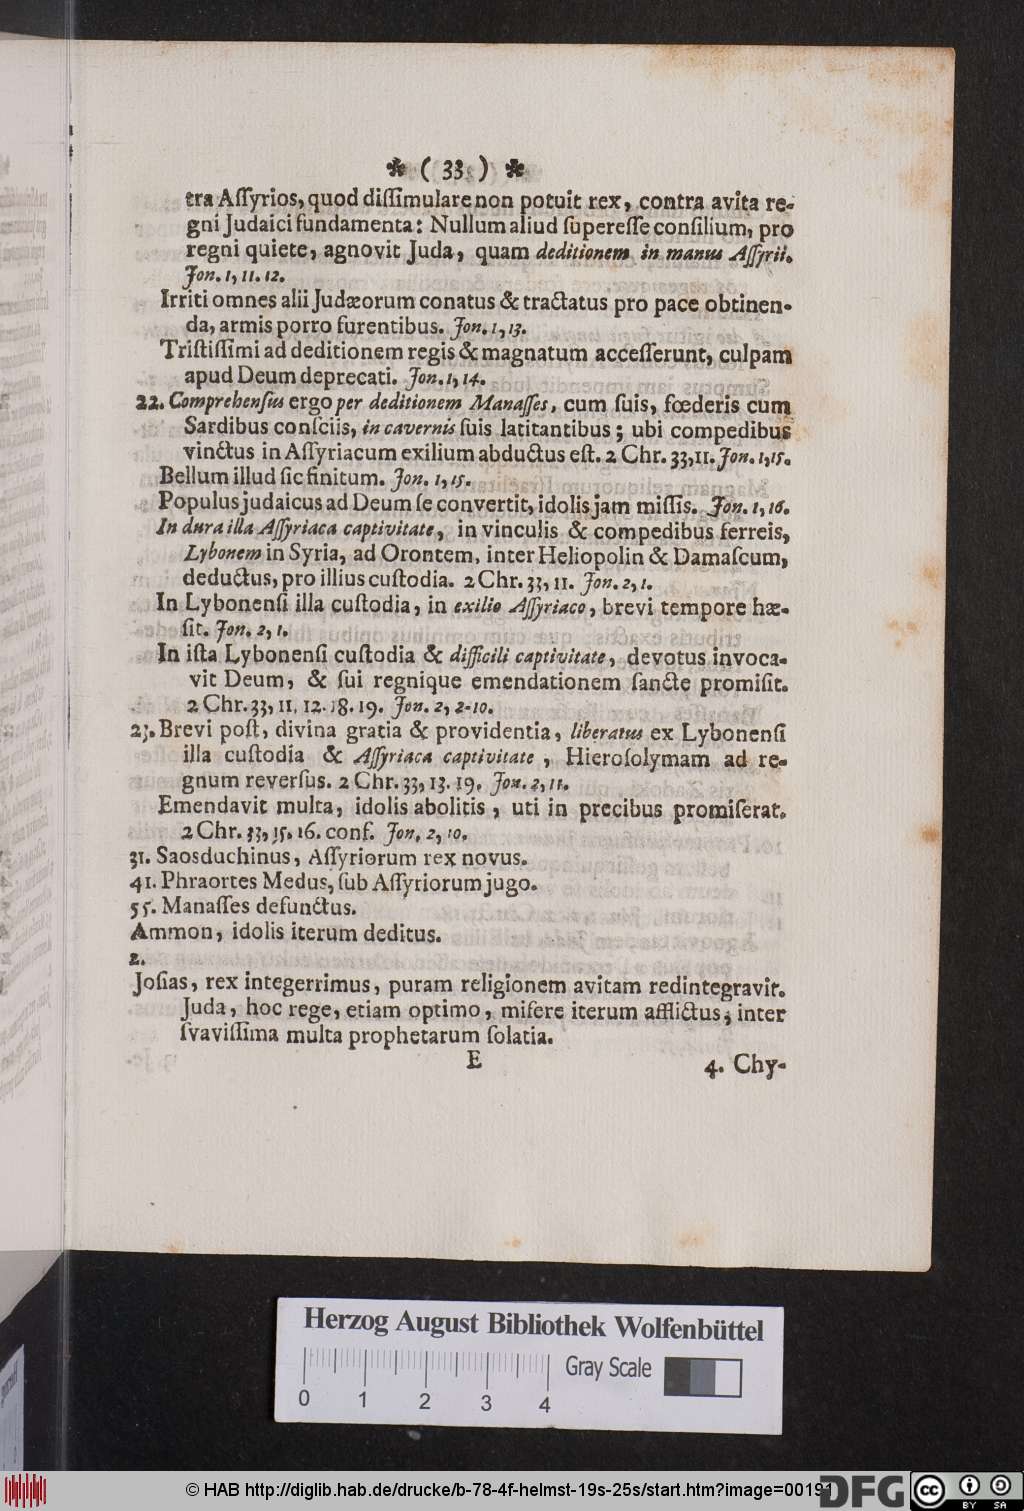 ✤ ( 33 ) ✤
tra Aſſyrios, quod diſſimulare non potuit rex, contra avita re-
gni Judaici fundamenta: Nullum aliud ſupereſſe conſilium, pro
regni quiete, agnovit Juda, quam deditionem in manus Aſſyrii.
Jon. 1, 11. 12.
Irriti omnes alii Judæorum conatus & tractatus pro pace obtinen-
da, armis porro furentibus. Jon. 1, 13.
Triſtiſſimi ad deditionem regis & magnatum acceſſerunt, culpam
apud Deum deprecati. Jon. 1, 14.
22. Comprehenſus ergo per deditionem Manaſſes, cum ſuis, fœderis cum
Sardibus conſciis, in cavernis ſuis latitantibus; ubi compedibus
vinctus in Aſſyriacum exilium abductus eſt. 2 Chr. 33, 11. Jon. 1, 15.
Bellum illud ſic finitum. Jon. 1, 15.
Populus judaicus ad Deum ſe convertit, idolis jam miſſis. Jon. 1, 16.
In dura illa Aſſyriaca captivitate, in vinculis & compedibus ferreis,
Lybonem in Syria, ad Orontem, inter Heliopolin & Damaſcum,
deductus, pro illius cuſtodia. 2 Chr. 33, 11. Jon. 2, 1.
In Lybonenſi illa cuſtodia, in exilio Aſſyriaco, brevi tempore hæ-
ſit. Jon. 2, 1.
In iſta Lybonenſi cuſtodia & difficili captivitate, devotus invoca-
vit Deum, & ſui regnique emendationem ſancte promiſit.
2 Chr. 33, 11. 12. 18. 19. Jon. 2, 2-10.
23. Brevi poſt, divina gratia & providentia, liberatus ex Lybonenſi
illa cuſtodia & Aſſyriaca captivitate, Hieroſolymam ad re-
gnum reverſus. 2 Chr. 33, 13. 19. Jon. 2, 11.
Emendavit multa, idolis abolitis, uti in precibus promiſerat.
2 Chr. 33, 15. 16. conf. Jon. 2, 10.
31. Saosduchinus, Aſſyriorum rex novus.
41. Phraortes Medus, ſub Aſſyriorum jugo.
55. Manaſſes defunctus.
Ammon, idolis iterum deditus.
2.
Joſias, rex integerrimus, puram religionem avitam redintegravit.
Juda, hoc rege, etiam optimo, miſere iterum afflictus; inter
ſvaviſſima multa prophetarum ſolatia.
E
4. Chy-
Herzog August Bibliothek Wolfenbüttel
Gray Scale
0 1 2 3 4
© HAB http://diglib.hab.de/drucke/b-78-4f-helmst-19s-25s/start.htm?image=00191
DFG
cc BY SA